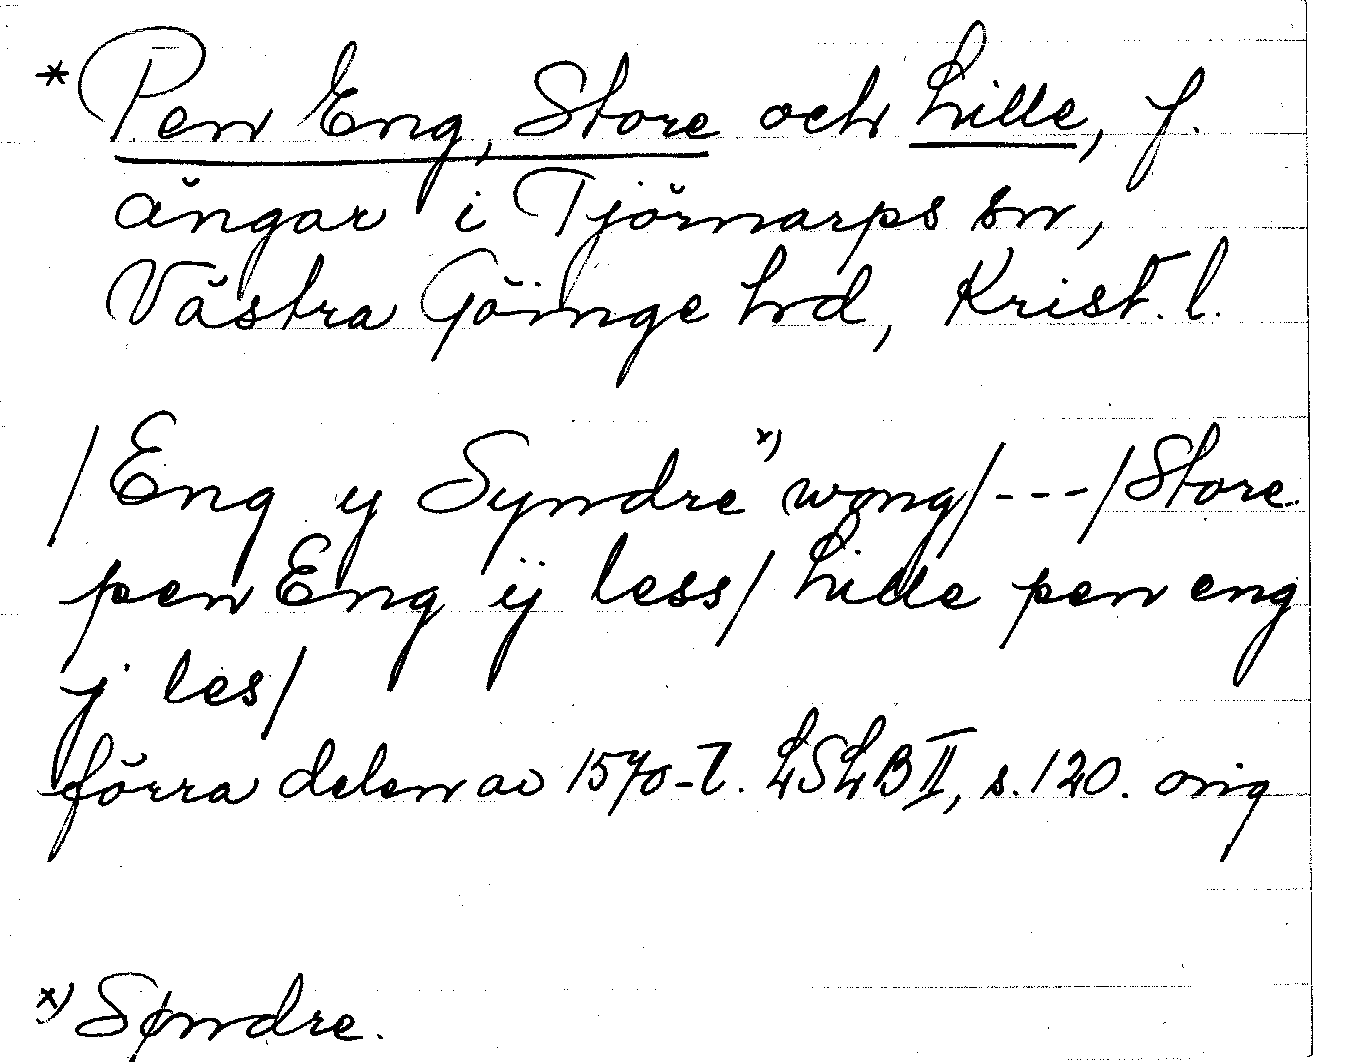 * Pen Eng, Store och Lille, f.
ängar i Tjörnarps sn,
Västra Göinge hrd, Krist. l.
/Eng y Syndre x) wong/---/Store
pen Eng ij less/ Lille pen eng
j les/
förra delen av 1570-t. LSLB II, s. 120. orig
x) Søndre.